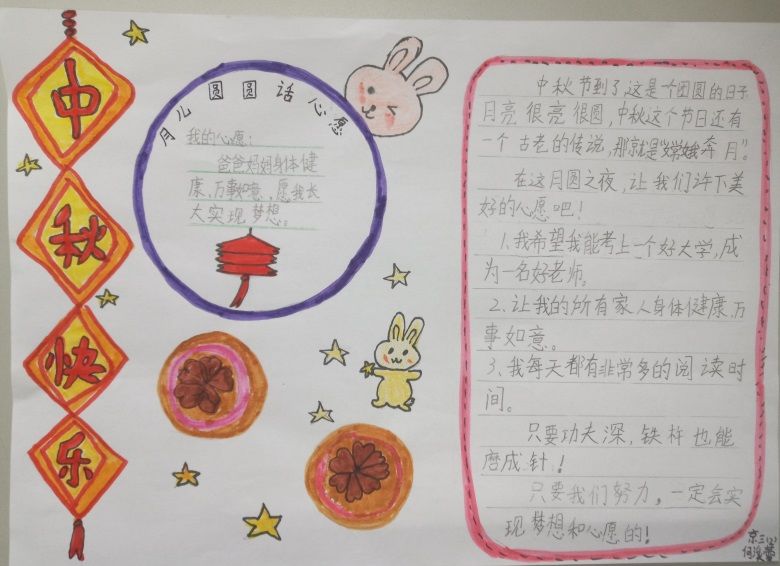 中
秋
快
乐
月儿圆圆话心愿
我的心愿:
爸爸妈妈身体健
康,万事如意,愿我长
大实现梦想。
中秋节到了,这是个团圆的日子
月亮很亮很圆,中秋这个节日还有
一个古老的传说,那就是“嫦娥奔月”。
在这月圆之夜,让我们许下美
好的心愿吧!
1.我希望我能考上一个好大学,成
为一名好老师。
2.让我的所有家人身体健康,万
事如意。
3、我每天都有非常多的阅读时
间。
只要功夫深,铁杵也能
磨成针!
只要我们努力,一定会实
现梦想和心愿的!
京三(2)
何